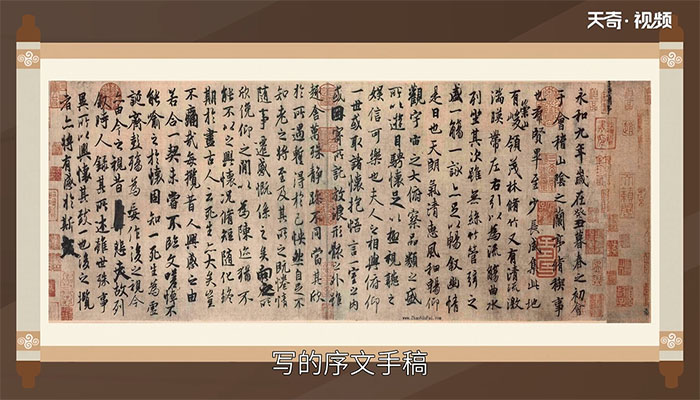 天奇·视频
永和九年歲在癸丑暮春之初會
于會稽山陰之蘭亭脩稧事
也羣賢畢至少長咸集此地
有崇山峻領茂林脩竹又有清流激
湍暎帶左右引以為流觴曲水
列坐其次雖無絲竹管弦之
盛一觴一詠亦足以暢敘幽情
是日也天朗氣清惠風和暢仰
觀宇宙之大俯察品類之盛
所以遊目騁懷足以極視聽之
娛信可樂也夫人之相與俯仰
一世或取諸懷抱悟言一室之內
或因寄所託放浪形骸之外雖
趣舍萬殊靜躁不同當其欣
於所遇蹔得於己怏然自足不
知老之將至及其所之既惓情
隨事遷感慨係之矣向之所
欣俛仰之間以為陳迹猶不
能不以之興懷況脩短隨化終
期於盡古人云死生亦大矣豈
不痛哉每攬昔人興感之由
若合一契未嘗不臨文嗟悼不
能喻之於懷固知一死生為虛
誕齊彭殤為妄作後之視今
亦由今之視昔悲夫故列
敘時人錄其所述雖世殊事
異所以興懷其致一也後之攬
者亦將有感於斯文
写的序文手稿